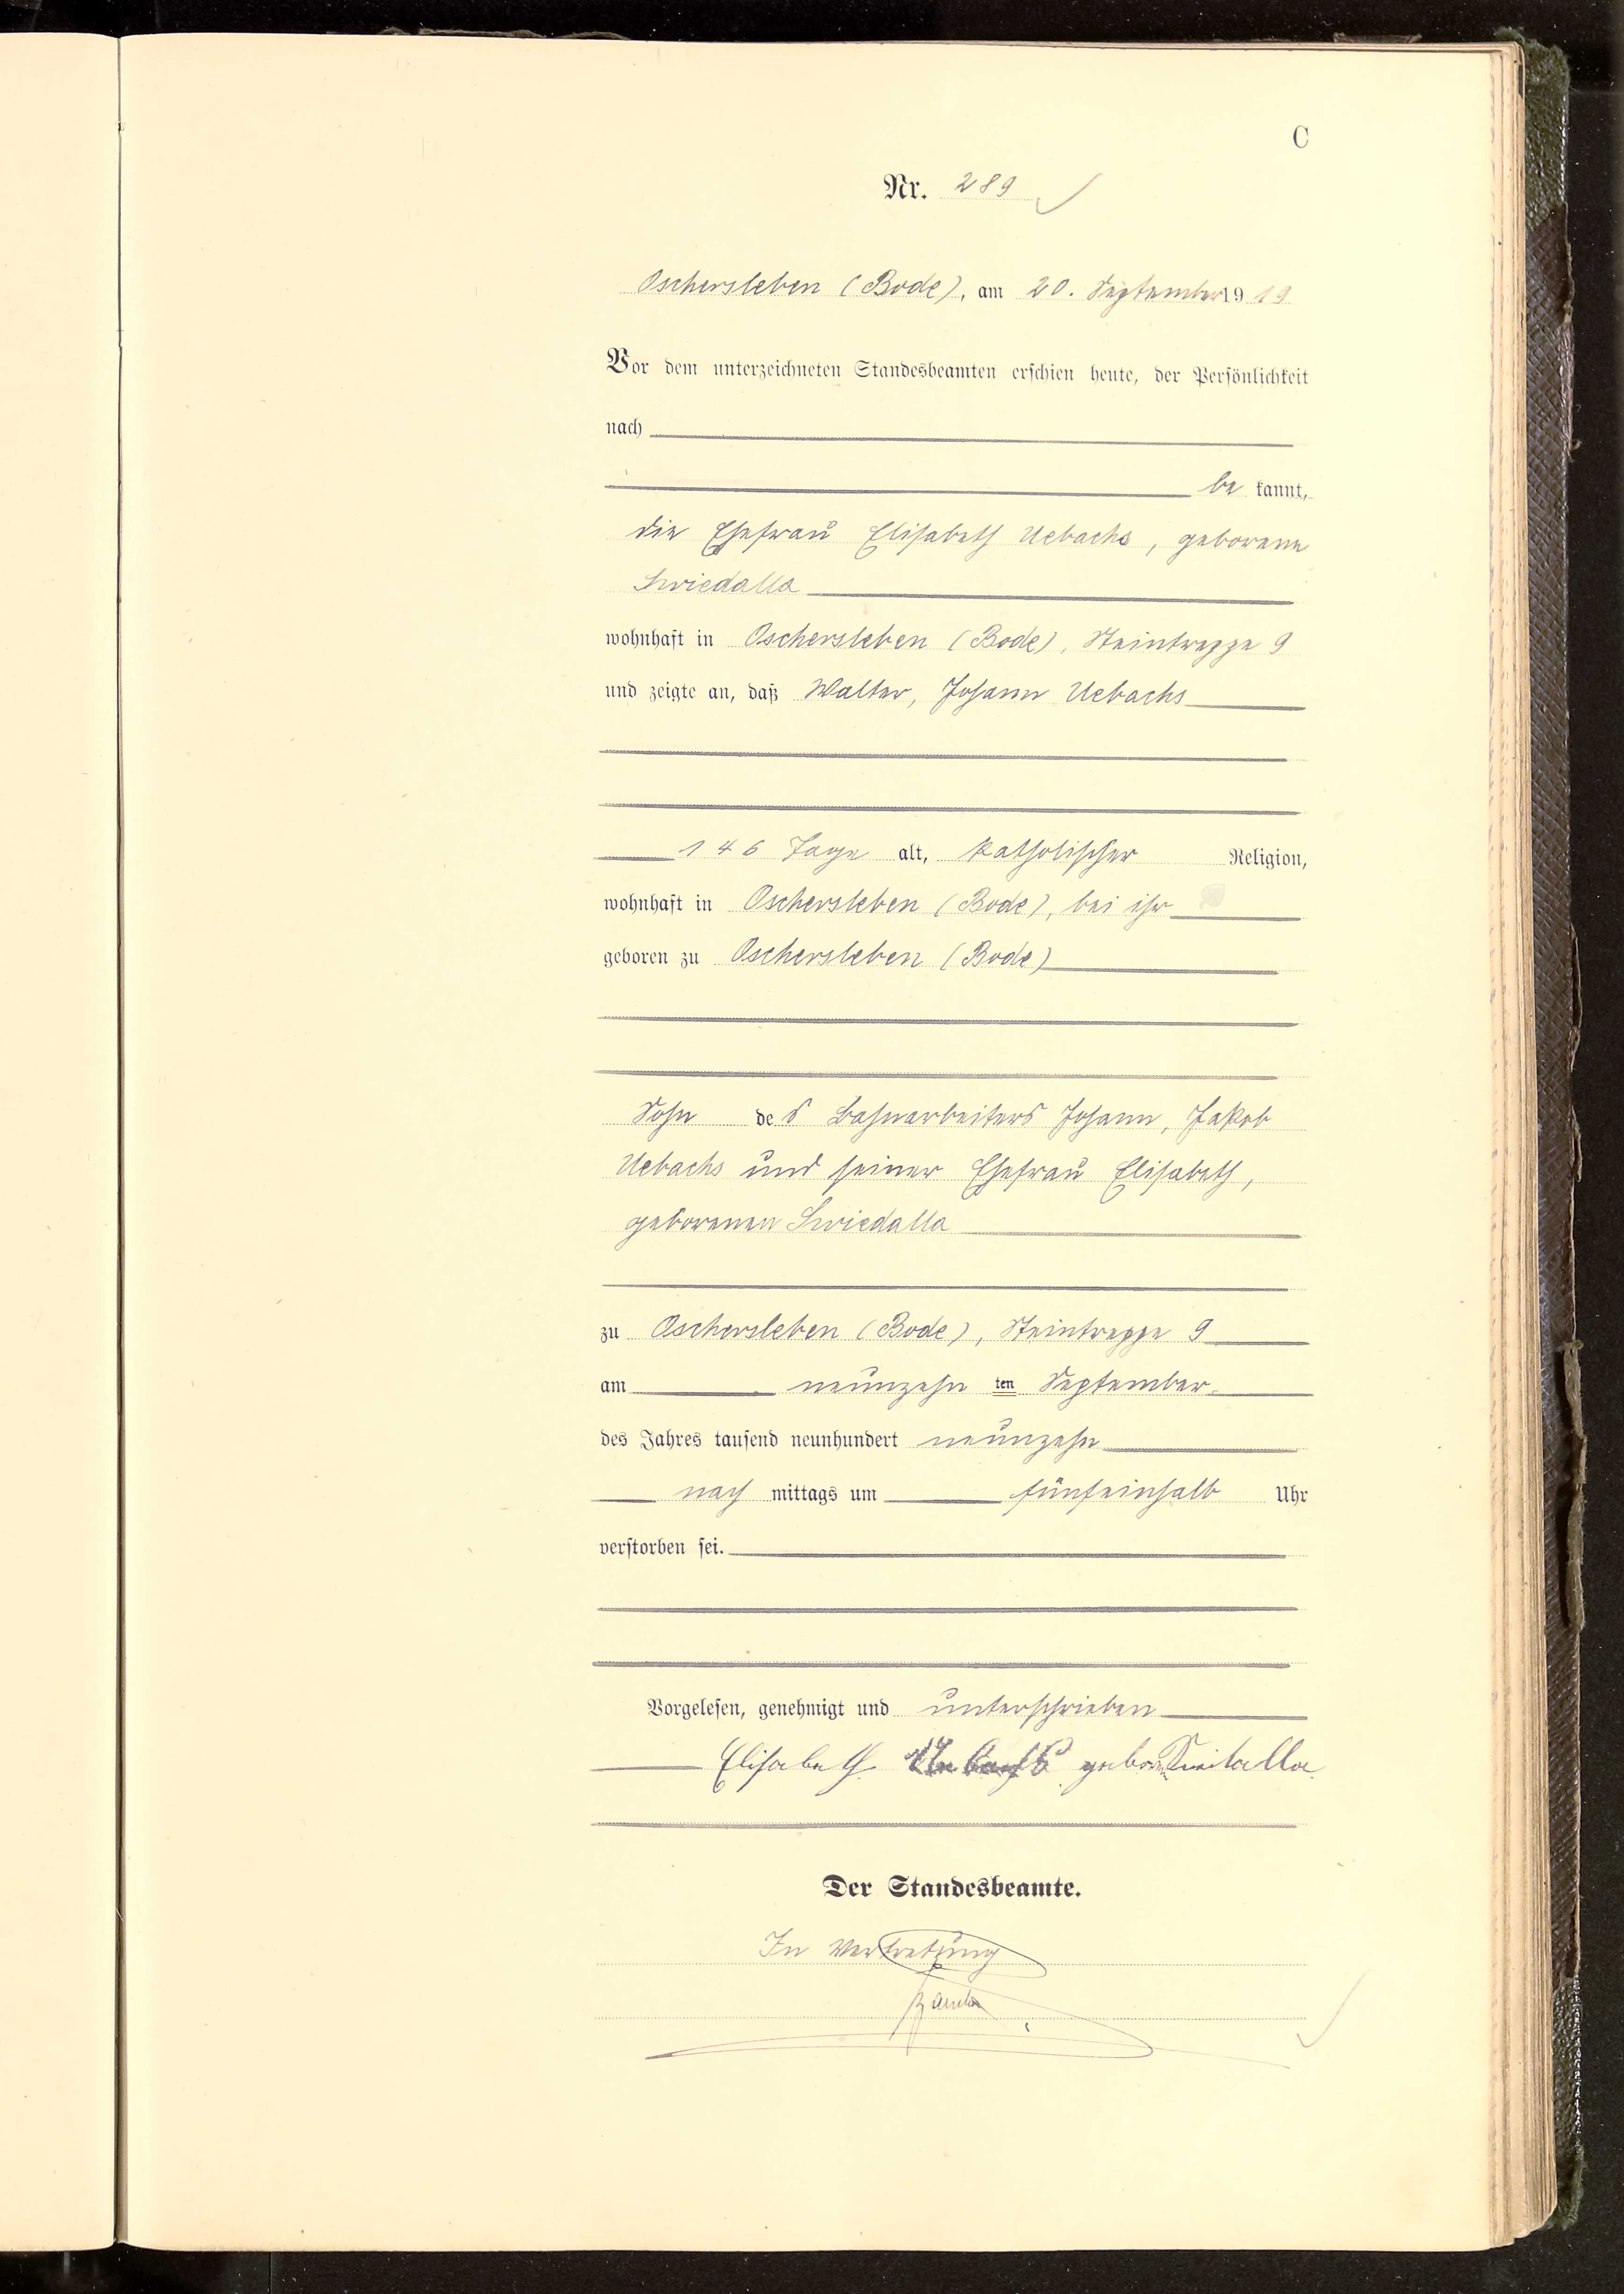 C
Nr. 289
Oschersleben (Bode), am 20. September 1919
Vor dem unterzeichneten Standesbeamten erschien heute, der Persönlichkeit
nach
be kannt,
die Ehefrau Elisabeth Uebachs, geborene
Swiedalla
wohnhaft in Oschersleben (Bode), Steintreppe 9
und zeigte an, daß Walter, Johann Uebachs
146 Tage alt, katholischer Religion,
wohnhaft in Oschersleben (Bode), bei ihr
geboren zu Oschersleben (Bode)
Sohn des Bahnarbeiters Johann, Jakob
Uebachs und seiner Ehefrau Elisabeth,
geborenen Swiedalla
zu Oschersleben (Bode), Steintreppe 9
am neunzehn ten September
des Jahres tausend neunhundert neunzehn
nach mittags um fünfeinhalb Uhr
verstorben sei.
Vorgelesen, genehmigt und unterschrieben
Elisabeth
Der Standesbeamte.
In Vertretung